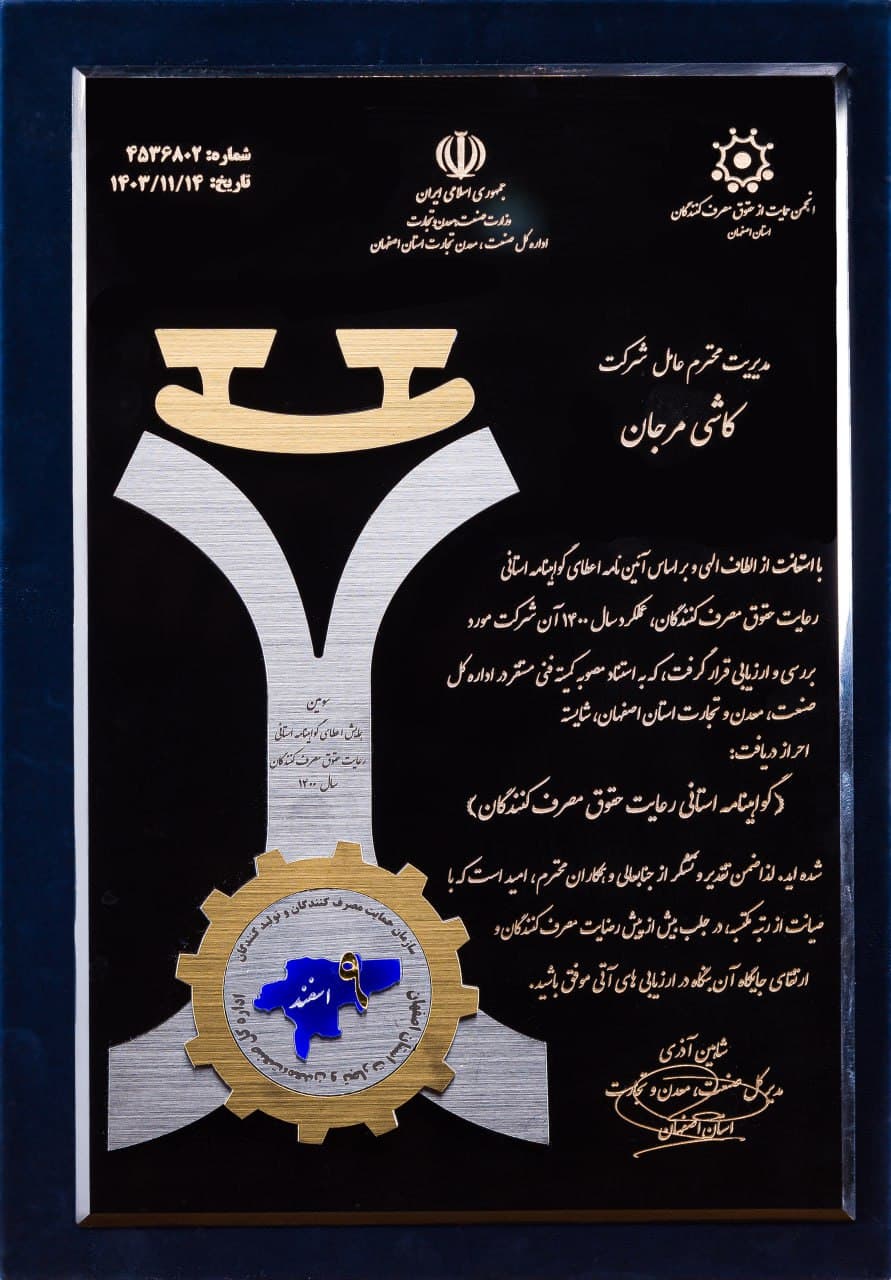 شماره: ۴۵۳۶۸۰۲
تاریخ: ۱۴۰۳/۱۱/۱۴
جمهوری اسلامی ایران
وزارت صنعت، معدن و تجارت
اداره کل صنعت، معدن تجارت استان اصفهان
انجمن حمایت از حقوق مصرف کنندگان
استان اصفهان
مدیریت محترم عامل شرکت
کاشی مرجان
با استعانت از الطاف الهی و بر اساس آئین نامه اعطای گواهینامه استانی
رعایت حقوق مصرف کنندگان، عملکرد سال ۱۴۰۰ آن شرکت مورد
بررسی و ارزیابی قرار گرفت، که به استناد مصوبه کمیته فنی مستقر در اداره کل
صنعت، معدن و تجارت استان اصفهان، شایسته
احراز دریافت:
(گواهینامه استانی رعایت حقوق مصرف کنندگان)
شده اید. لذا ضمن تقدیر و تشکر از جنابعالی و همکاران محترم، امید است که با
صیانت از رتبه مکتسبه، در جلب بیش از پیش رضایت مصرف کنندگان و
ارتقای جایگاه آن بنگاه در ارزیابی های آتی موفق باشید.
شاهین آذری
مدیر کل صنعت، معدن و تجارت
استان اصفهان
سومین
همایش اعطای گواهینامه استانی
رعایت حقوق مصرف کنندگان
سال ۱۴۰۰
سازمان حمایت مصرف کنندگان و تولید کنندگان
۹
اسفند
اداره کل صنعت،معدن و تجارت استان اصفهان